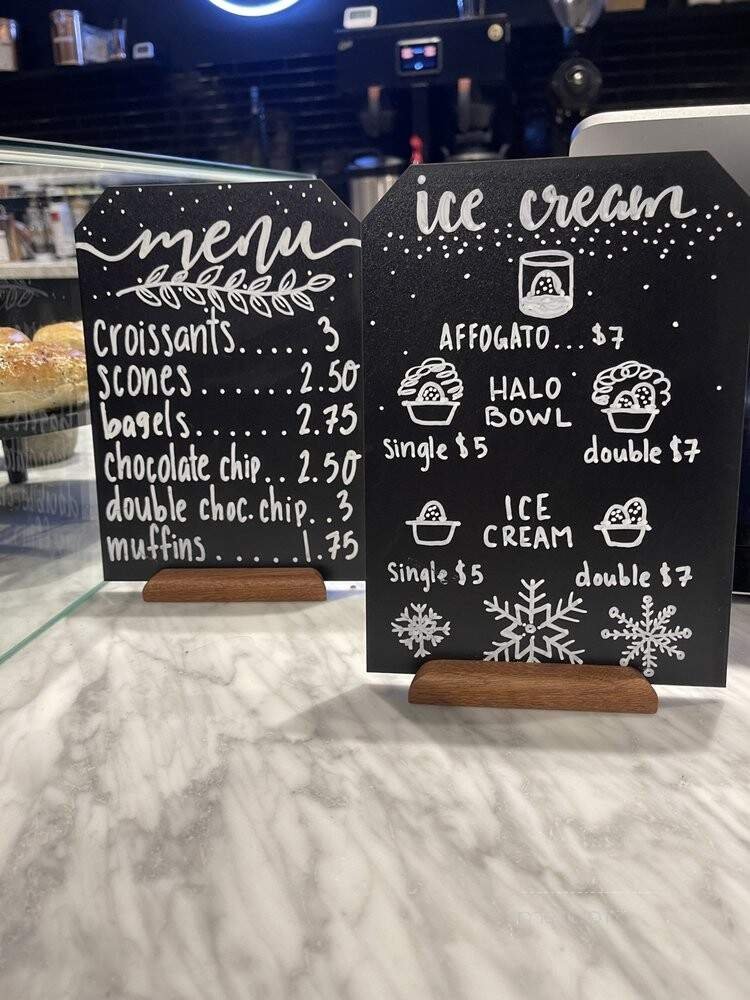 menu
croissants.....3
scones.......2.50
bagels.......2.75
chocolate chip..2.50
double choc.chip..3
muffins.....1.75
ice cream
AFFOGATO...$7
HALO
BOWL
single $5
double $7
ICE
CREAM
single $5
double $7